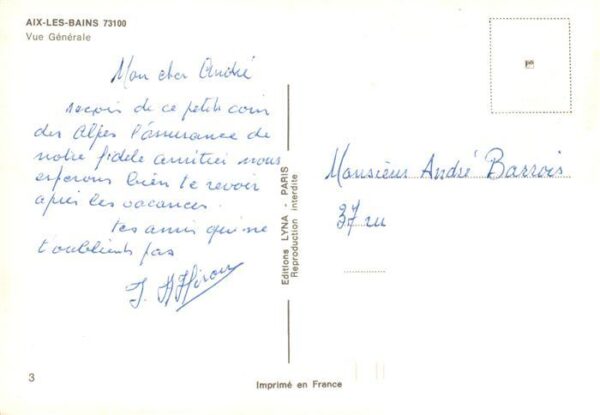 AIX-LES-BAINS 73100
Vue Générale
Mon cher André
reçois de ce petit coin
des Alpes l'assurance de
notre fidèle amitiée nous
esperons bien te revoir
après les vacances.
tes amis qui ne
t'oublient pas
J.
Editions LYNA - PARIS
Reproduction interdite
Monsieur André Barrois
37 ru
3
Imprimé en France